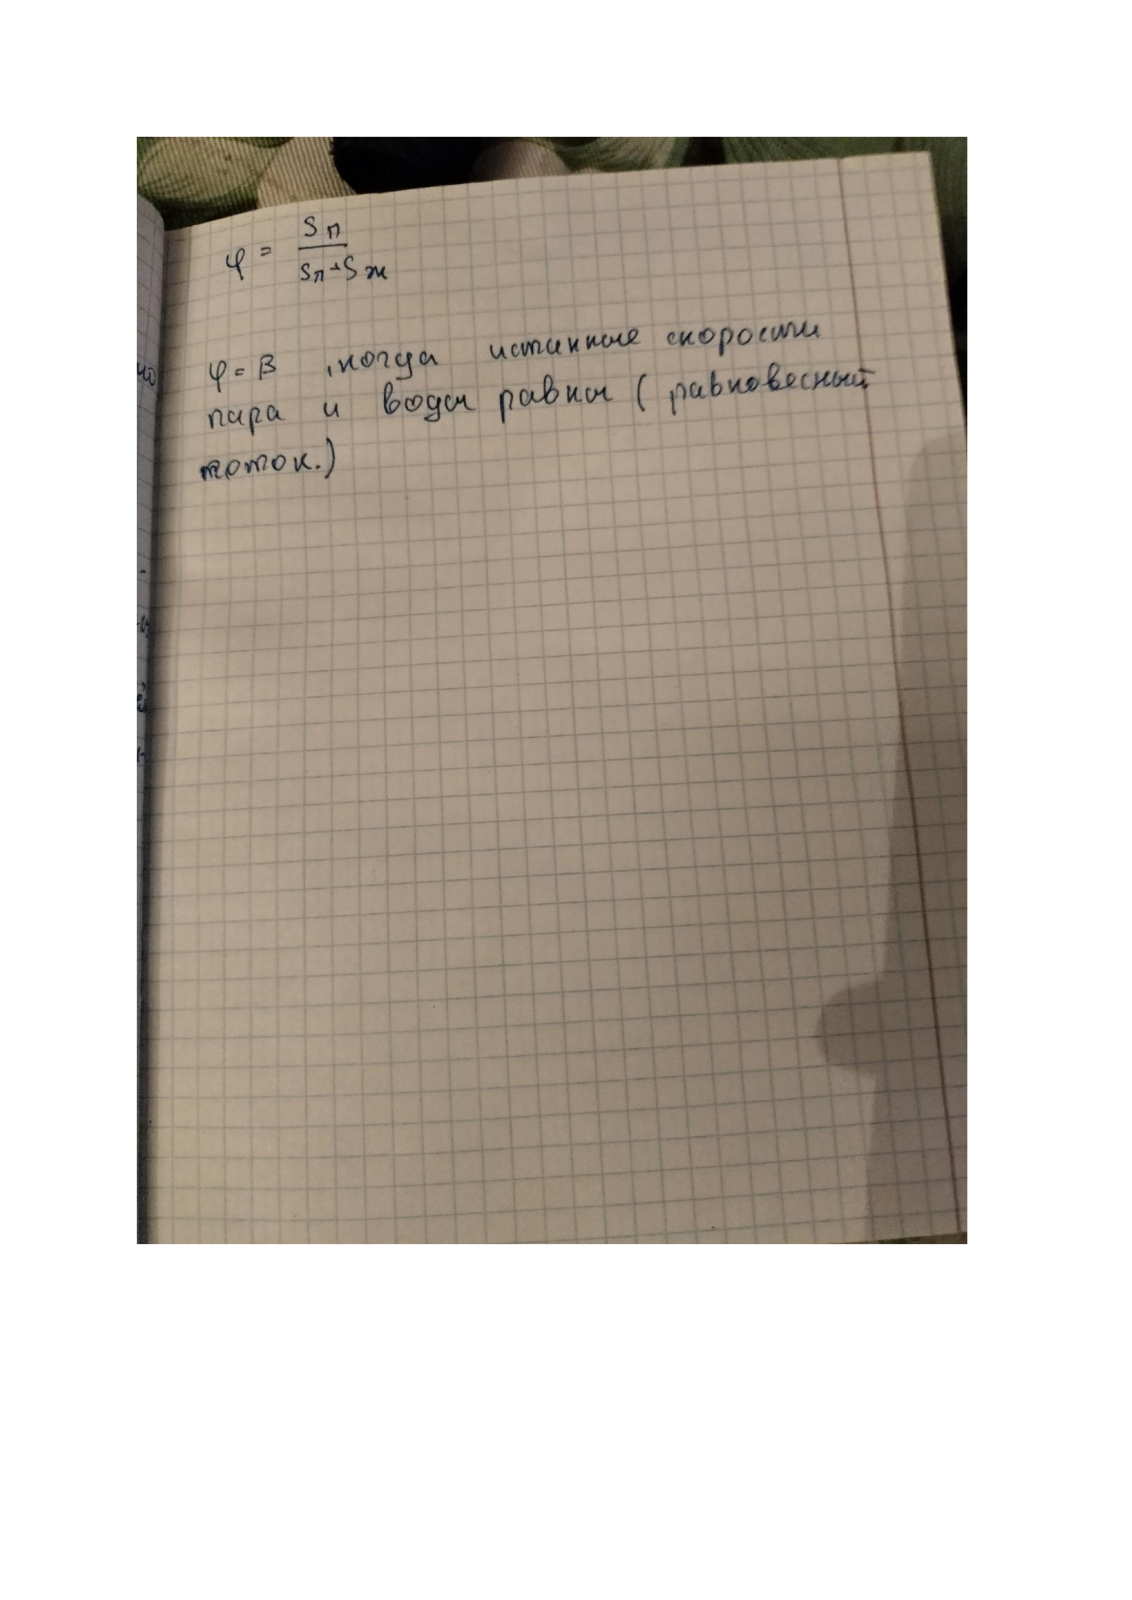 φ = Sп / (Sп + Sж)
φ = β , когда истинные скорости
пара и воды равны ( равновесный
поток.)